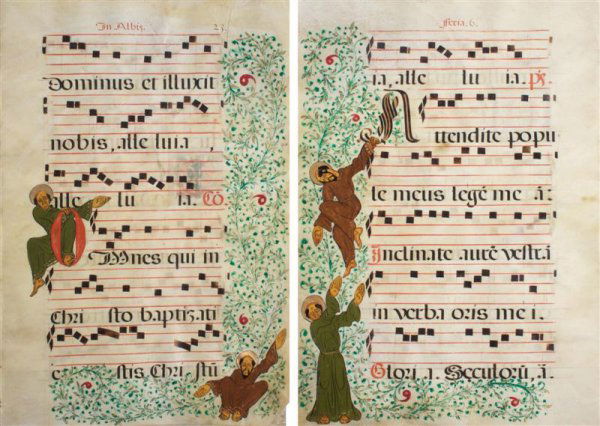 In Albis. 23
Dominus et illuxit
nobis, alle luia
alle lu ia. Cõ.
OMnes qui in
Chri sto baptizati
e stis Chri. stũ
Feria. 6.
ia, alle lu ia. ps.
Attendite popu
le meus legẽ me ã:
Inclinate aurẽ vestrã
in verba oris me i.
Glori. a. Seculorũ. ã.